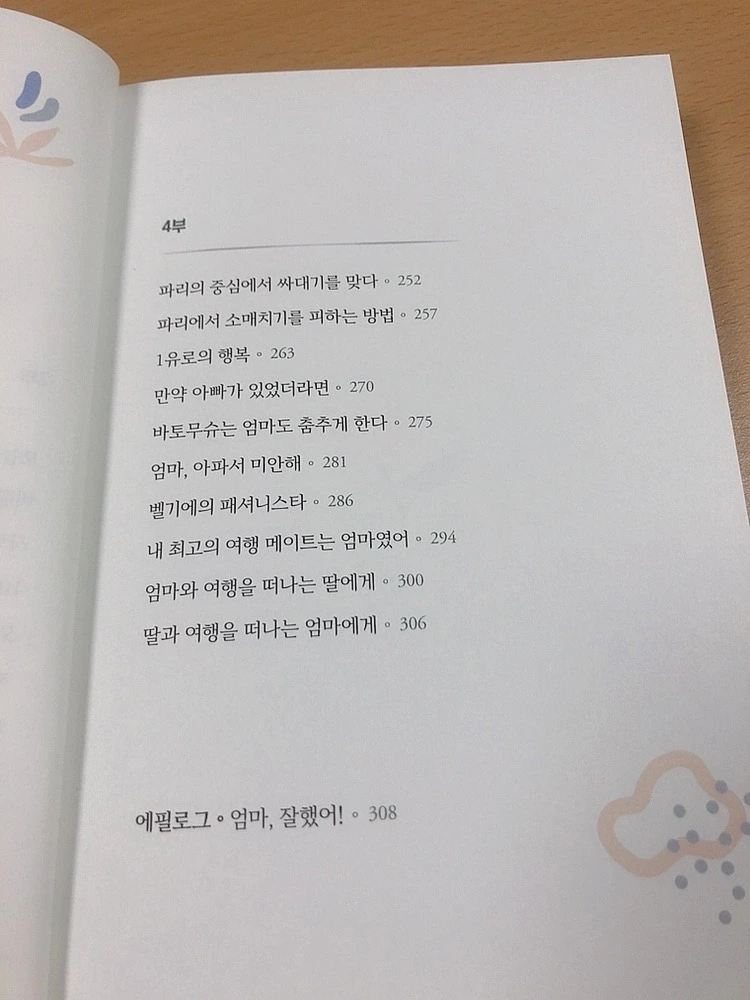 4부
파리의 중심에서 싸대기를 맞다 ◦ 252
파리에서 소매치기를 피하는 방법 ◦ 257
1유로의 행복 ◦ 263
만약 아빠가 있었더라면 ◦ 270
바토무슈는 엄마도 춤추게 한다 ◦ 275
엄마, 아파서 미안해 ◦ 281
벨기에의 패셔니스타 ◦ 286
내 최고의 여행 메이트는 엄마였어 ◦ 294
엄마와 여행을 떠나는 딸에게 ◦ 300
딸과 여행을 떠나는 엄마에게 ◦ 306
에필로그 ◦ 엄마, 잘했어! ◦ 308